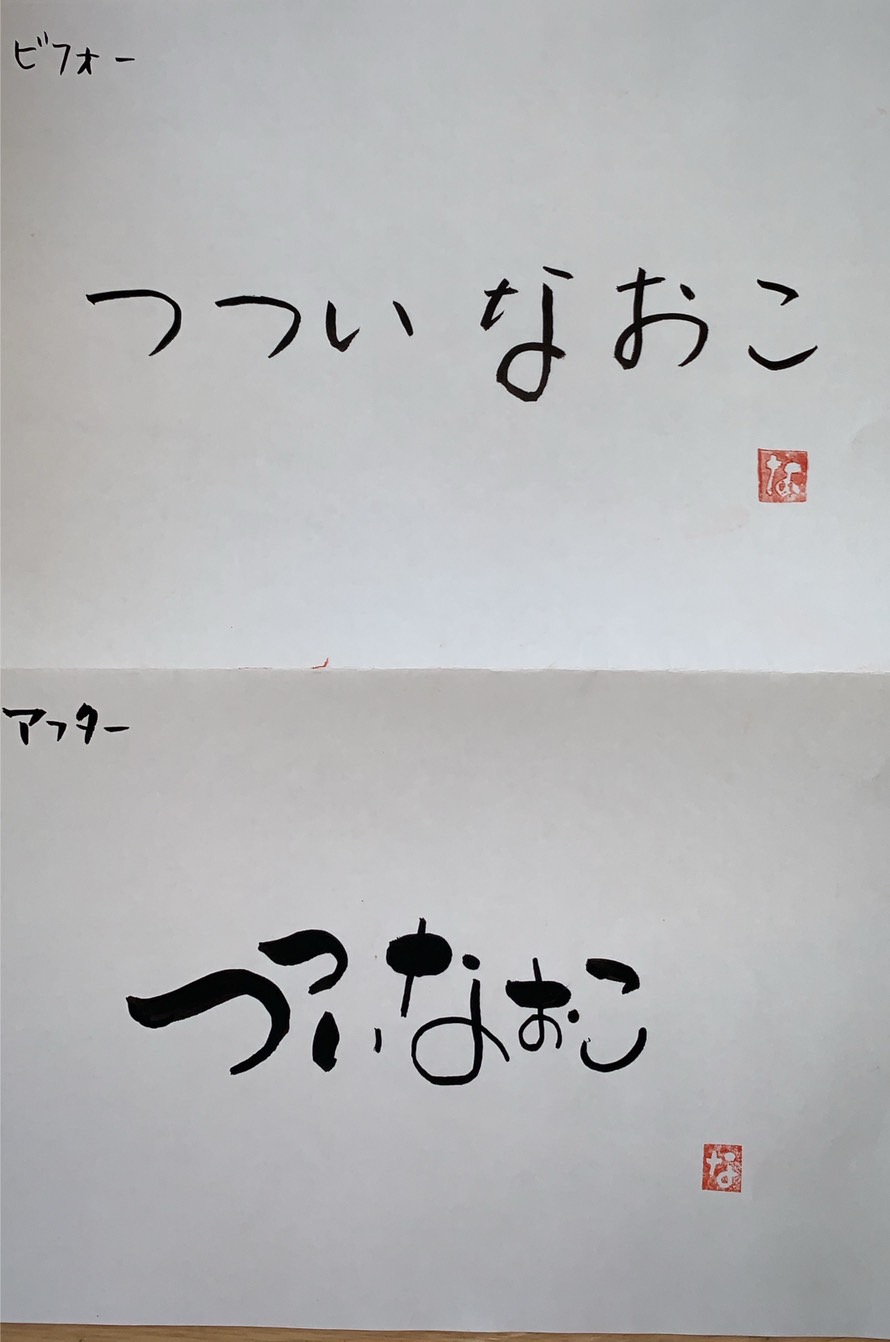 ビフォー
つつい なおこ
な
アフター
つついなおこ
な